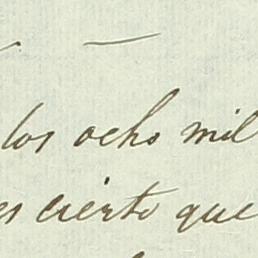 los ocho mil
es cierto que